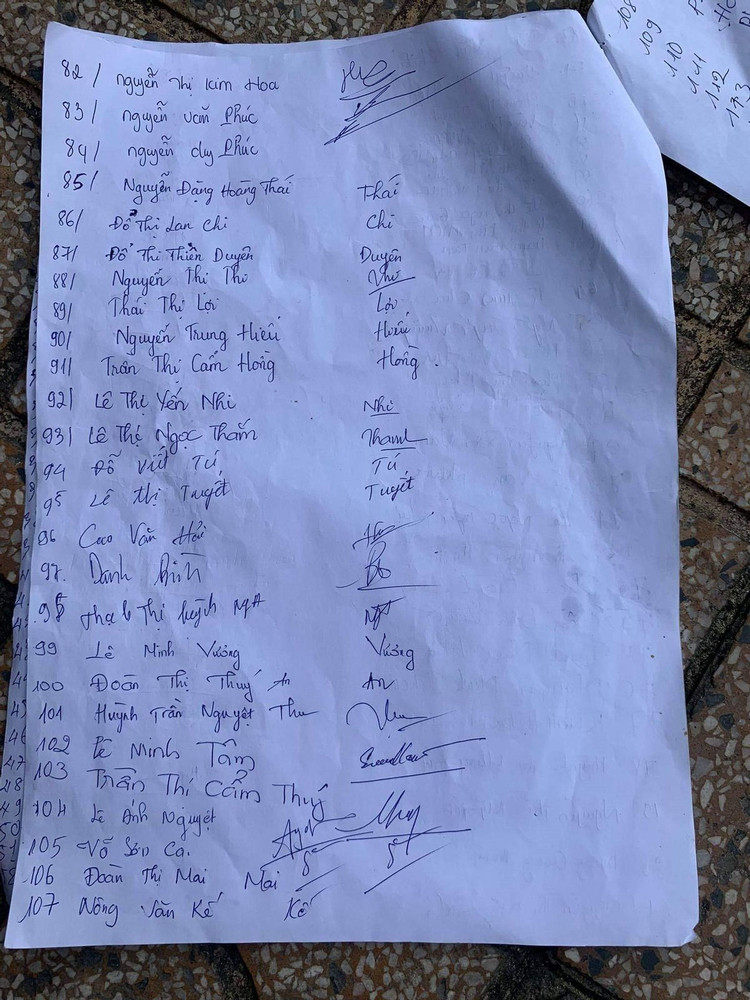 82/ Nguyễn Thị Kim Hoa
83/ nguyễn văn Phúc
84/ nguyễn duy Phúc
85/ Nguyễn Đặng Hoàng Thái Thái
86/ Đổ Thị Lan Chi Chi
87/ Đổ Thị Thiên Duyên Duyên
88/ Nguyễn Thị Thơ
89/ Thái Thị Lợi Lợi
90/ Nguyễn Trung Hiếu Hiếu
91/ Trần Thị Cẩm Hồng Hồng
92/ Lê Thị Yến Nhi Nhi
93/ Lê Thị Ngọc Thắm
94 Đỗ Viết Tú Tú
95 Lê Thị Tuyết Tuyết
96 Cao Văn Hải
97. Danh Bình
98 Thị
99 Lê Minh Vương Vương
100 Đoàn Thị Thuý An An
101 Huỳnh Trần Nguyệt Thu Thu
102 Lê Minh Tâm
103 Trần Thị Cẩm Thuý Thuy
104 Lê Ánh Nguyệt
105 Võ Sơn Ca.
106 Đoàn Thị Mai Mai
107 Nông Văn Kế Kế
108
109
110
111
112
113